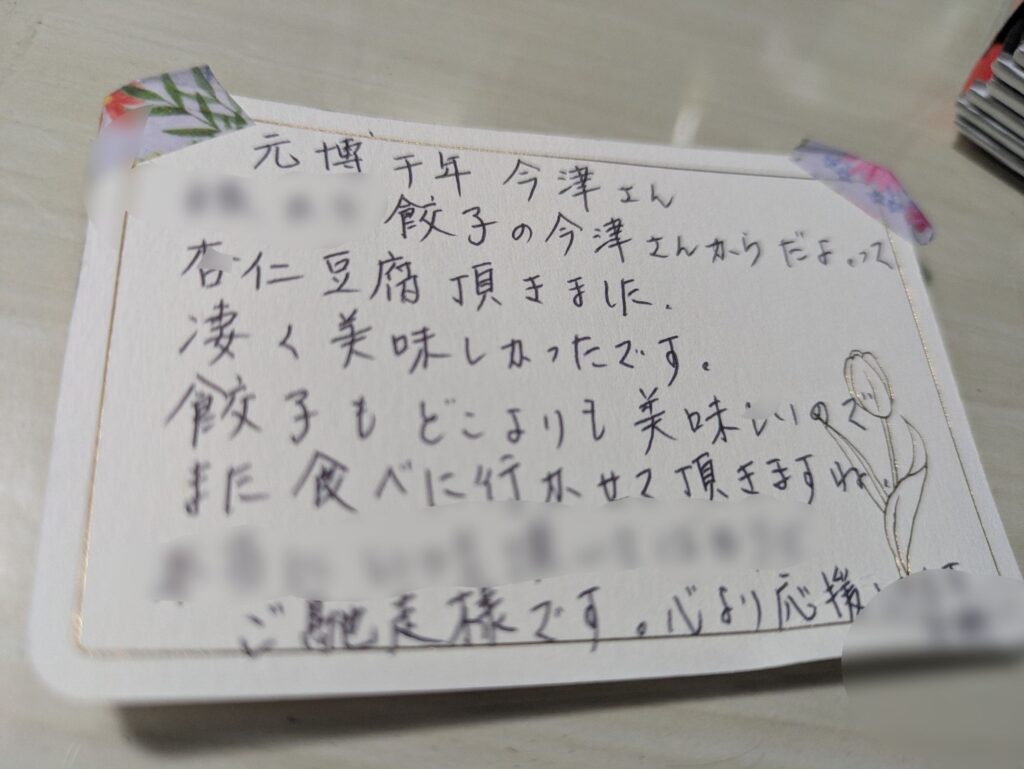 元博千年 今津さん
餃子の今津さんからだよって
杏仁豆腐頂きました.
凄く美味しかったです。
餃子もどこよりも美味しいので
また食べに行かせて頂きますね.
ご馳走様です。心より応援